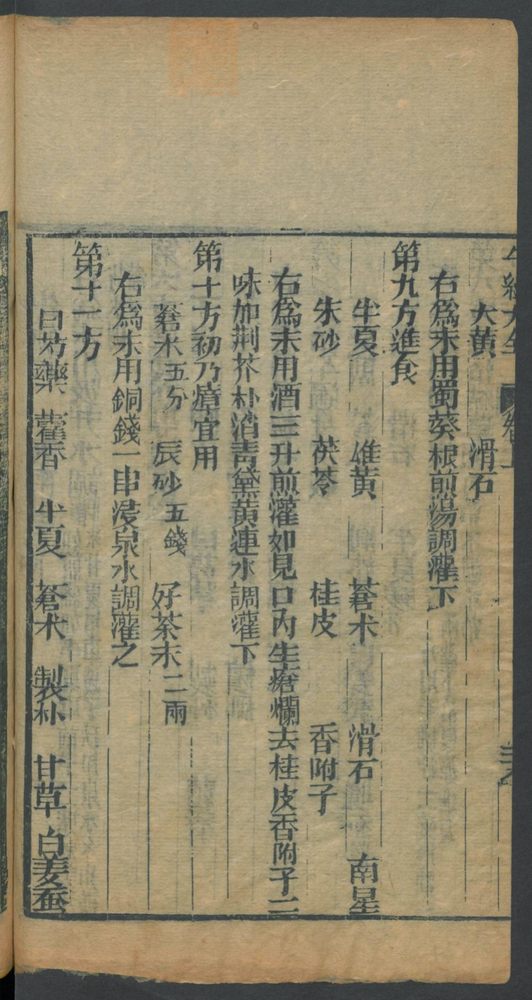 大黄 滑石
右爲末用蜀葵根煎湯調灌下
第九方進食
半夏 雄黃 蒼术 滑石 南星
朱砂 茯苓 桂皮 香附子
右爲末用酒三升煎灌如見口内生瘡爛去桂皮香附子二
味加荆芥朴消青黛黄連水調灌下
第十方初乃瘴宜用
蒼术五分 辰砂五錢 好茶末二兩
右爲末用銅錢一串浸泉水調灌之
第十一方
藿香 半夏 蒼术 製朴 甘草 白姜蚕